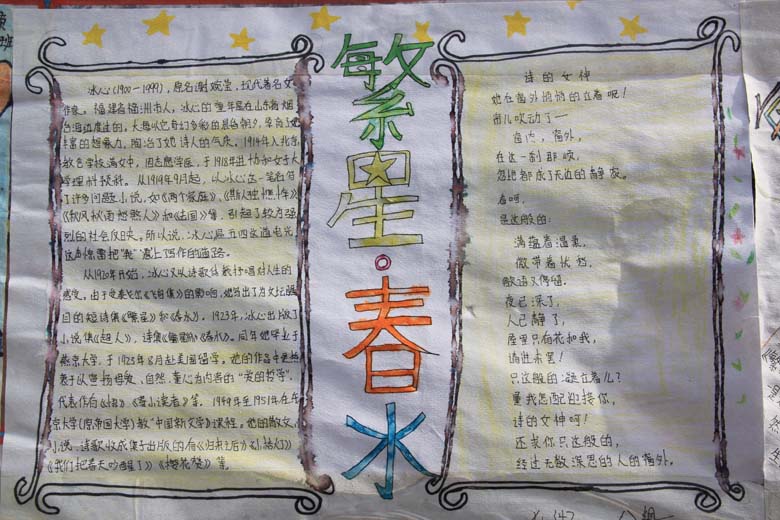 冰心(1900-1999),原名谢婉莹,现代著名女
作家。福建省福州市人,冰心的童年是在山东省烟
台海边度过的,大海以它奇幻多彩的晨台朝夕,孕育了她
丰富的想象力,陶冶了她诗人的气质。1914年入北京
教会学校满女中,因志愿学医,于1918年进协和女子大
学理科预科。从1919年9月起,以冰心这一笔名写
了许多问题小说,如《两个家庭》、《斯人独憔悴》
《秋风秋雨愁煞人》和《去国》等,引起了较为强
烈的社会反映。所以说,冰心是五四
这声惊雷把"我"震上了写作的道路。
从1920年开始,冰心又从诗歌
感受。由于受泰戈尔《飞鸟集》的影响,她写出了为文坛瞩
目的短诗集《繁星》和《春水》。1923年,冰心出版了
小说集《超人》,诗集《繁星》《春水》。同年她毕业于
燕京大学,于1923年8月赴美国留学。她的作品中
表于以宣扬母爱、自然、童心为内容的"爱的哲学",
代表作有《超人》《寄小读者》等。1949年至1951年在东
京大学(原帝国大学)教"中国新文学"课程。她的散文、
小说、诗歌收成集子出版的有《归来之后》《小桔灯》
《我们把春天吵醒了》《樱花赞》等。
繁星·春水
诗的女神
她在窗外悄悄的立着呢!
帘儿吹动了—
窗内,窗外,
在这一刹那顷,
忽地都成了无边的静寂。
看呵,
是这般的:
满蕴着温柔,
微带着忧愁,
欲语又停留。
夜已深了,
人已静了,
屋里只有花和我,
请进来罢!
只这般的凝立着么?
量我怎配迎接你,
诗的女神呵!
还求你只这般的,
经过无数深思的人的窗外。